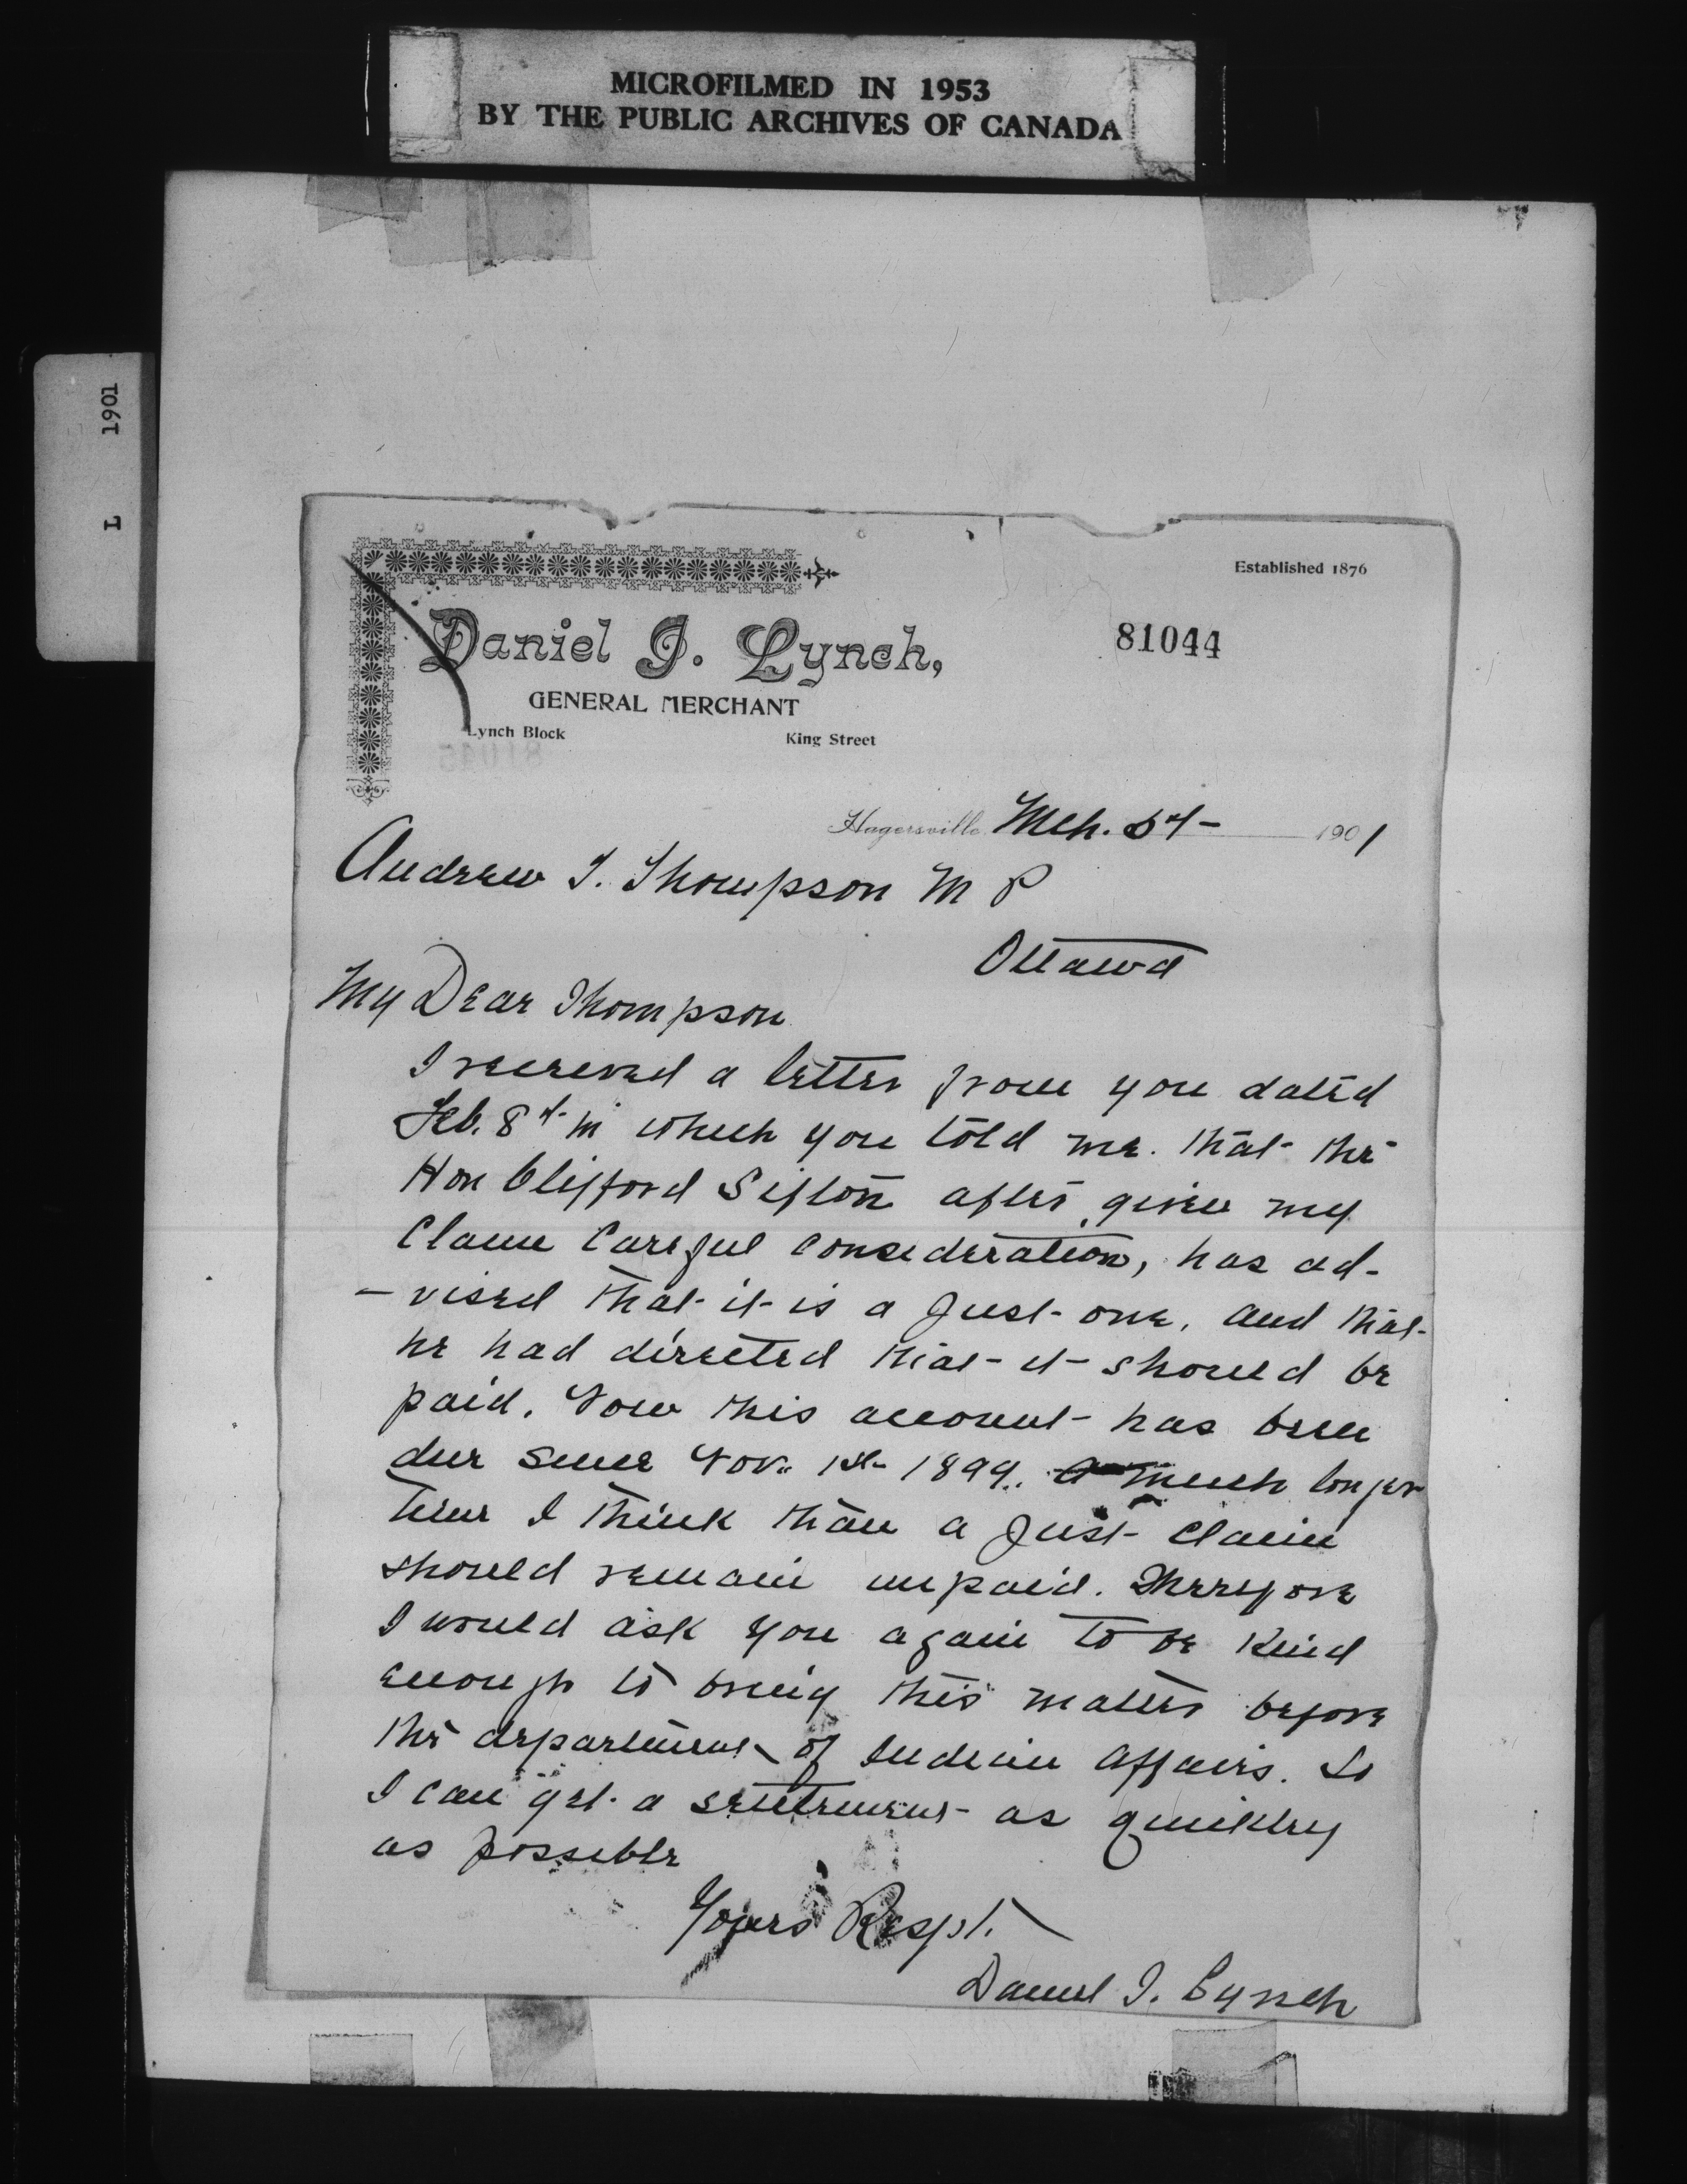 MICROFILMED IN 1953
BY THE PUBLIC ARCHIVES OF CANADA
L 1901
Established 1876
Daniel J. Lynch,
81044
GENERAL MERCHANT
Lynch Block King Street
Hagersville Mch. 5th 1901
Andrew T. Thompson M P
Ottawa
My Dear Thompson
I received a letter from you dated
Feb. 8th in which you told me. that the
Hon Clifford Sifton after given my
Claim Careful Consideration, has ad-
-vised that it is a Just one, and that
he had directed that it should be
paid. Now this account has been
due since Nov. 1st 1899. a much longer
time I think than a Just Claim
should remain unpaid. Therefore
I would ask you again to be kind
enough to bring this matter before
the department of Indian Affairs. So
I can get a settlement as quickley
as possible
Yours Respt.
Daniel J. Lynch